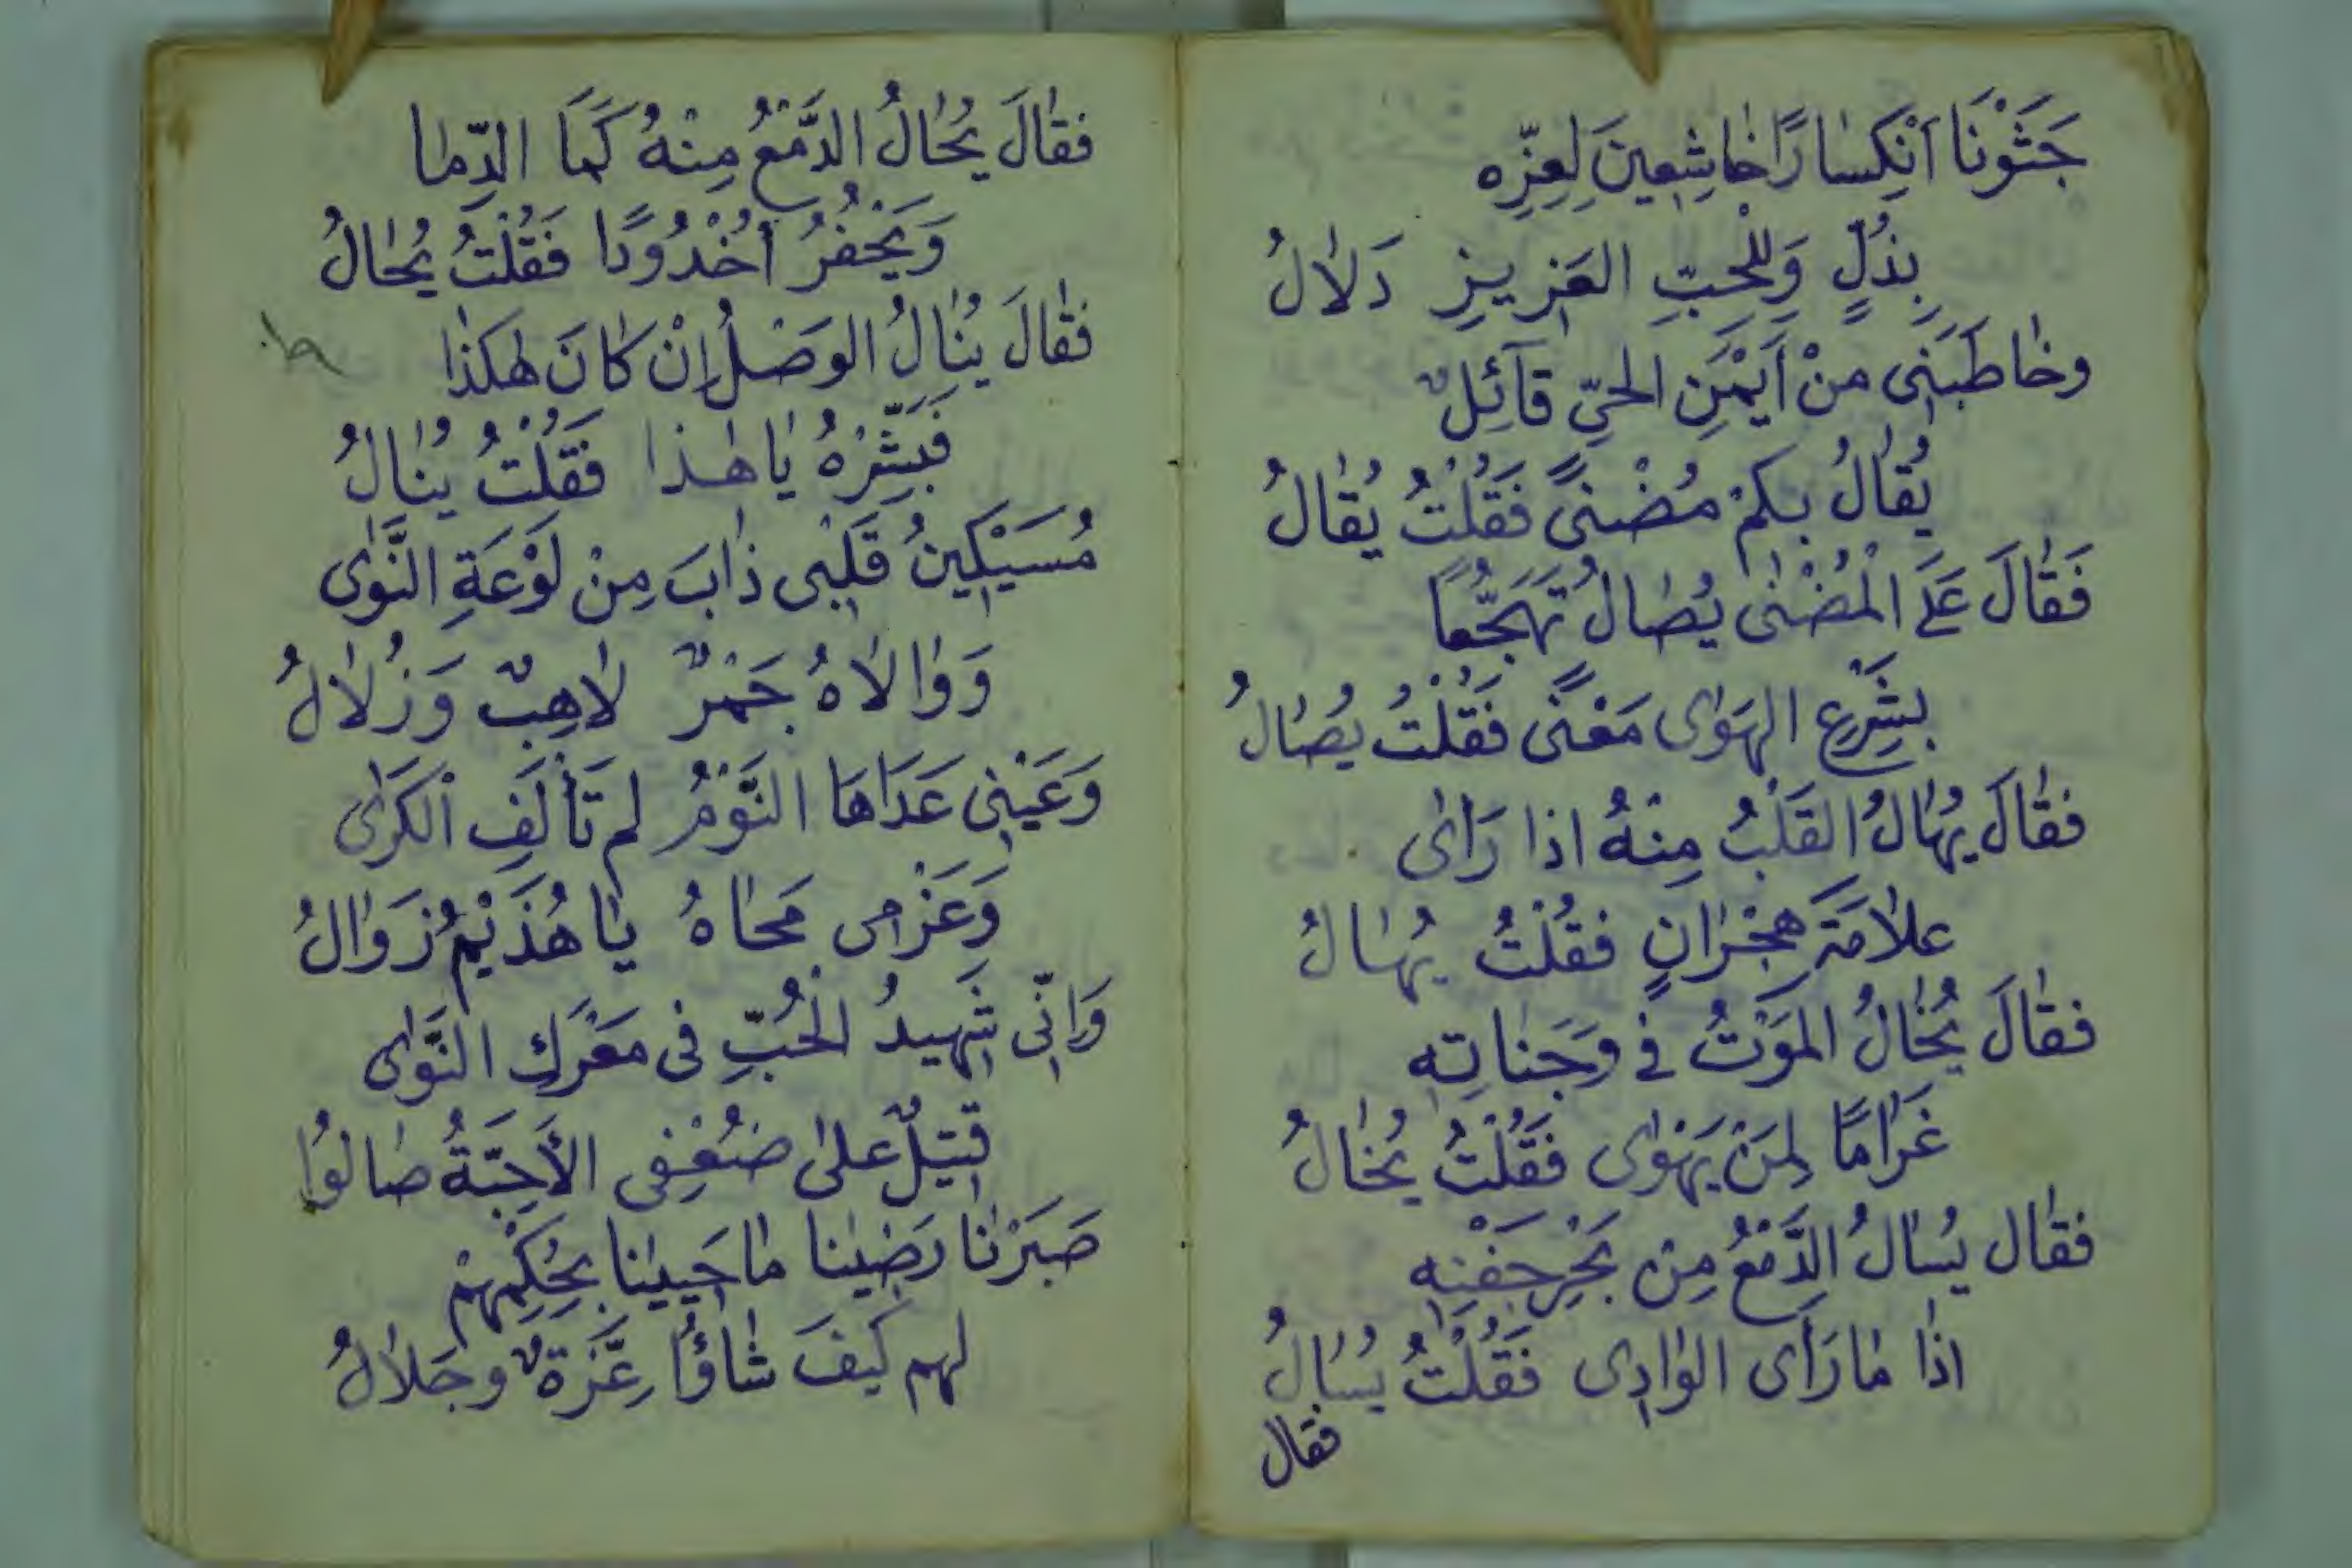 جَثَوْنَا اَنْكِسٰارًا خٰاشِعِينَ لِعِزِّه
بِذُلٍّ وَلِلْحِبِّ العَزِيزِ دَلٰالُ
وخٰاطَبَنِى منْ اَيْمَنِ الحَىِّ قآئِلٌ
يُقٰالُ بِكمْ مُضْنىً فَقُلْتُ يُقٰالُ
فَقٰالَ عَلَى الْمُضْنٰى يُصٰالُ تَهَجُّمًا
بِشَرْعِ الهَوٰى مَعْنًى فَقُلْتُ يُصٰالُ
فقٰالَ يُهٰالُ القَلْبُ مِنْهُ اذا رَاٰى
علاٰمَةَ هِجْرٰانٍ فقُلْتُ يُهٰالُ
فقٰالَ يُخٰالُ المَوْتُ فى وَجَنٰاتِه
غَرٰامًا لِمَنْ يَهْوٰى فَقُلْتُ يُخٰالُ
فقٰال يُسٰالُ الدَّمْعُ مِنْ بَحْرِ جَفْنِه
اذٰا مٰا رَأَى الوٰادِى فَقُلْتُ يُسٰالُ
فقال
فقٰالَ يُحٰالُ الدَّمْعُ مِنْهُ كَمَا الدِّمٰا
وَيَحْفُرُ أُخْدُودًا فَقُلْتُ يُحٰالُ
فقٰالَ يُنٰالُ الوَصْلُ اِنْ كٰانَ هٰكَذٰا
فَبَشِّرْهُ يٰا هٰذا فَقُلْتُ يُنٰالُ
مُسَيْكِينُ قَلْبِى ذٰابَ مِنْ لَوْعَةِ النَّوٰى
وَوٰالاٰهُ جَمْرٌ لٰاهِبٌ وَزُلٰالُ
وَعَيْنِى عَدَاهَا النَّوْمُ لم تَأْلَفِ الْكَرٰى
وَعَزْمِى مَحٰاهُ يٰا هُذَيْمُ زَوٰالُ
وَاِنِّى شَهِيدُ الحُبِّ فى مَعْرَكِ النَّوٰى
قَتِيلٌ علىٰ ضُعْفِى الأَحِبَّةُ صٰالوُا
صَبَرْنٰا رَضِينٰا مٰا حَيِينٰا بِحُكْمِهِمْ
لهم كَيْفَ شٰاؤُا عِزَّةٌ وجَلاٰلُ